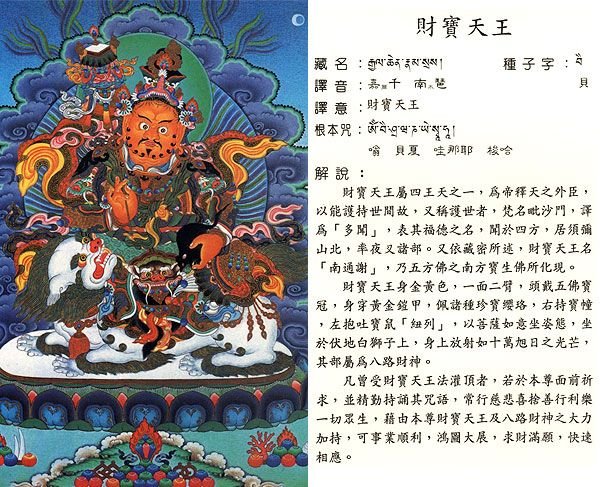 財寶天王
藏名：རྒྱལ་ཆེན་རྣམ་སྲས། 種子字：བཻ
譯音：嘉爾千 南木瑟 貝
譯意：財寶天王
根本咒：ༀ་བཻ་ཤྲ་ཝ་ཎ་ཡེ་སྭཱ་ཧཱ།
嗡 貝夏 哇那耶 梭哈
解說：
財寶天王屬四王天之一，爲帝釋天之外臣，
以能護持世間故，又稱護世者，梵名毗沙門，譯
爲「多聞」，表其福德之名，聞於四方，居須彌
山北，率夜叉諸部。又依藏密所述，財寶天王名
「南通謝」，乃五方佛之南方寶生佛所化現。
財寶天王身金黃色，一面二臂，頭戴五佛寶
冠，身穿黃金鎧甲，佩諸種珍寶纓珞，右持寶幢
，左抱吐寶鼠「紐列」，以菩薩如意坐姿態，坐
於伏地白獅子上，身上放射如十萬旭日之光芒，
其部屬爲八路財神。
凡曾受財寶天王法灌頂者，若於本尊面前祈
求，並精勤持誦其咒語，常行慈悲喜捨善行利樂
一切眾生，藉由本尊財寶天王及八路財神之大力
加持，可事業順利，鴻圖大展，求財滿願，快速
相應。